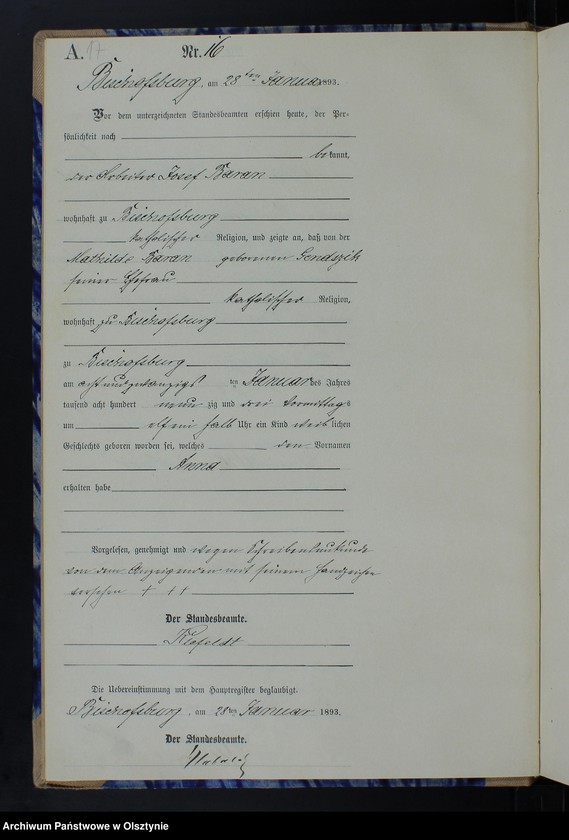 A. 17 Nr. 16
Bischofsburg, am 28ten Januar 1893.
Vor dem unterzeichneten Standesbeamten erschien heute, der Per-
sönlichkeit nach
bekannt,
der Arbeiter Josef Baran
wohnhaft zu Bischofsburg
katholischer Religion, und zeigte an, daß von der
Mathilde Baran geborenen Gendszik
seiner Ehefrau
katholischer Religion,
wohnhaft zu Bischofsburg
zu Bischofsburg
am achtundzwanzigs ten Januar des Jahres
tausend acht hundert neun zig und drei Vormittags
um elf ein halb Uhr ein Kind weib lichen
Geschlechts geboren worden sei, welches den Vornamen
Anna
erhalten habe
Vorgelesen, genehmigt und wegen Schreibensunkunde
von dem Anzeigenden mit seinem Handzeichen
versehen + + +
Der Standesbeamte.
Die Uebereinstimmung mit dem Hauptregister beglaubigt.
Bischofsburg, am 28ten Januar 1893.
Der Standesbeamte.
Archiwum Państwowe w Olsztynie